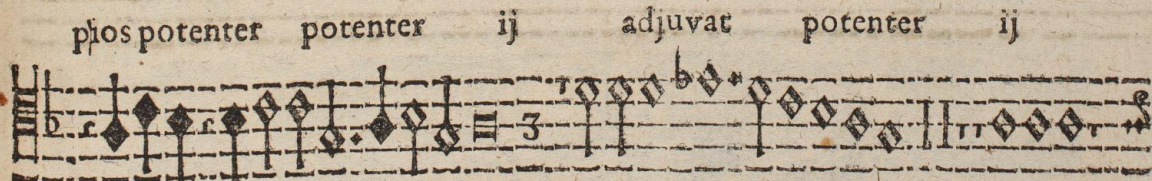 pios potenter potenter ij adjuvat potenter ij
3